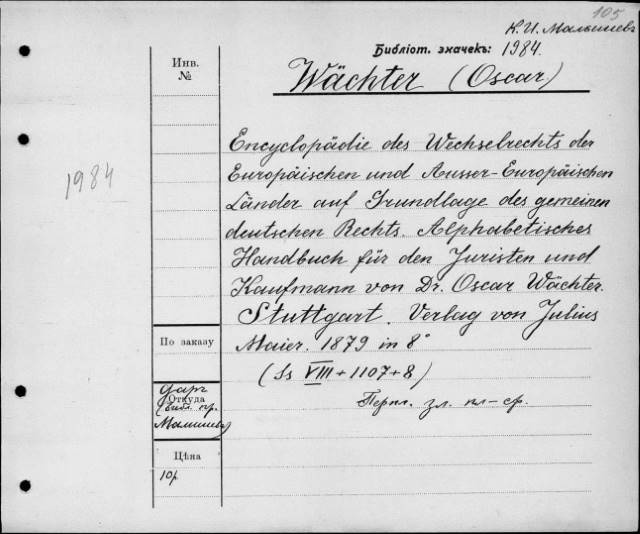 105
К. И. Малышевъ
Библіот. значекъ: 1984.
Wächter (Oscar.)
Инв.
№
1984
Encyclopädie des Wechselrechts der
Europäischen und Ausser-Europäischen
Länder auf Grundlage des gemeinen
deutschen Rechts. Alphabetisches
Handbuch für den Juristen und
Kaufmann von Dr. Oscar Wächter.
Stuttgart. Verlag von Julius
Maier. 1879 in 8°
(Ss VIII + 1107 + 8)
По заказу
Откуда
Малышева)
Цѣна
10р